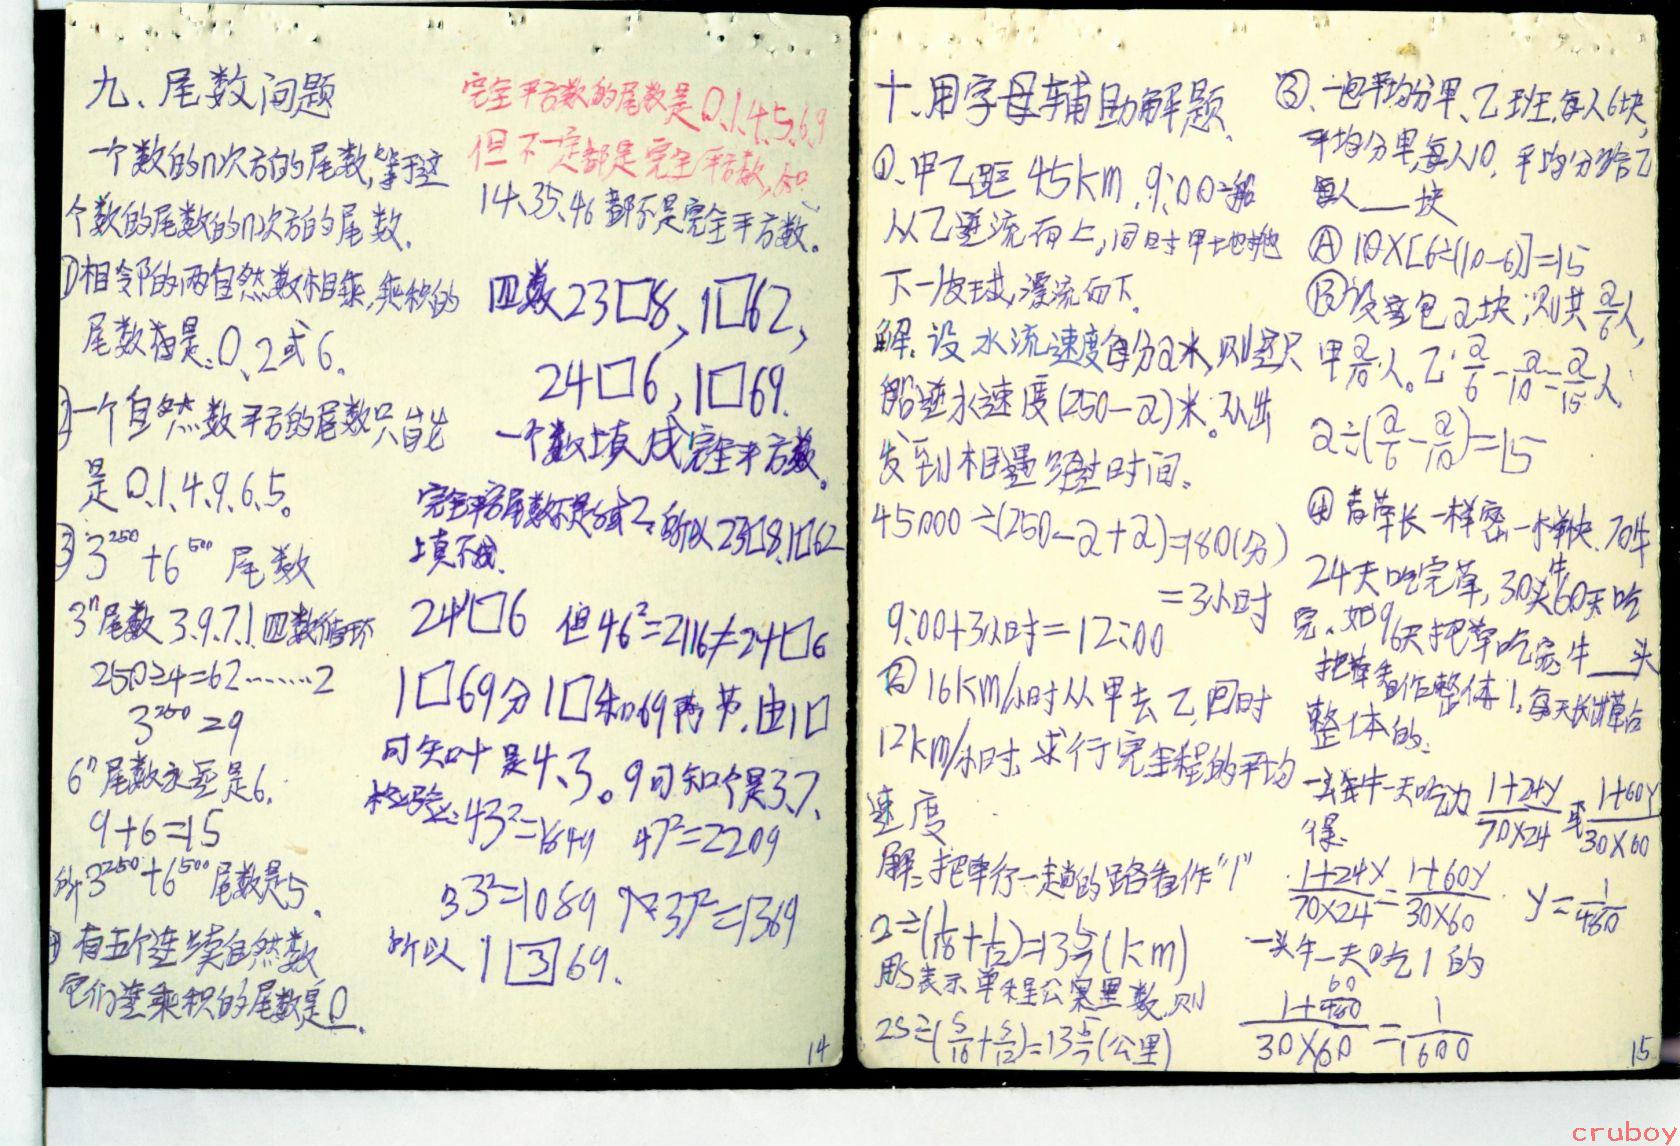 九、尾数问题
一个数的n次方的尾数,等于这
个数的尾数的n次方的尾数.
①相邻的两自然数相乘,乘积的
尾数指是:0、2或6.
②一个自然数平方的尾数只能
是0、1、4、9、6、5。
③3²⁵⁰+6⁵⁰⁰尾数
3ⁿ尾数3.9.7.1.四数循环
250÷4=62……2
3²⁵⁰=9
6ⁿ尾数永远是6.
9+6=15
所以3²⁵⁰+6⁵⁰⁰尾数是5.
④有五个连续自然数
它们连乘积的尾数是0.
完全平方数的尾数是0.1.4.5.6.9
但不一定都是完全平方数,如
14、35、46都不是完全平方数。
四数23□8,1□62,
24□6,1□69.
一个数填成完全平方数。
完全平方尾数不是8或2,所以23□8,1□62
填不成.
24□6 但46²=2116≠24□6
1□69分1□和69两节.由1□
可知十是4、3。9可知个是3、7.
检验:43²=1849 47²=2209
33²=1089 37²=1369
所以1[3]69.
14
十.用字母辅助解题.
①.甲乙距45km.9:00一船
从乙逆流而上,同时甲地抛
下一皮球,漂流而下.
解.设水流速度每分a米,则这只
船逆水速度(250-a)米.从出
发到相遇经过时间.
45000÷(250-a+a)=180(分)
=3小时
9:00+3小时=12:00
②16km/小时从甲去乙,回时
12km/小时.求行完全程的平均
速度
解:把单行一趟的路看作"1"
2÷(1/16+1/12)=13 5/7(km)
用S表示单程公里数.则
2S÷(S/16+S/12)=13 5/7(公里)
③、一包平均分甲、乙班.每人6块,
平均分甲,每人10.平均分给乙
每人__块
Ⓐ10×[6÷(10-6)]=15
Ⓑ设这包a块,则共a/6人,
甲a/10人。乙:a/6-a/10=a/15人.
a÷(a/6-a/10)=15
④青草长一样密一样快.70牛
24天吃完草,30头牛60天吃
完.如96天把草吃完.牛__头
把草看作整体1,每天长出草占
整体的y
一头牛一天吃为(1+24y)/(70×24)或(1+60y)/(30×60)
得:
(1+24y)/(70×24)=(1+60y)/(30×60) y=1/480
一头牛一天吃1的
(1+60/480)/(30×60)=1/1600
15
cruboy